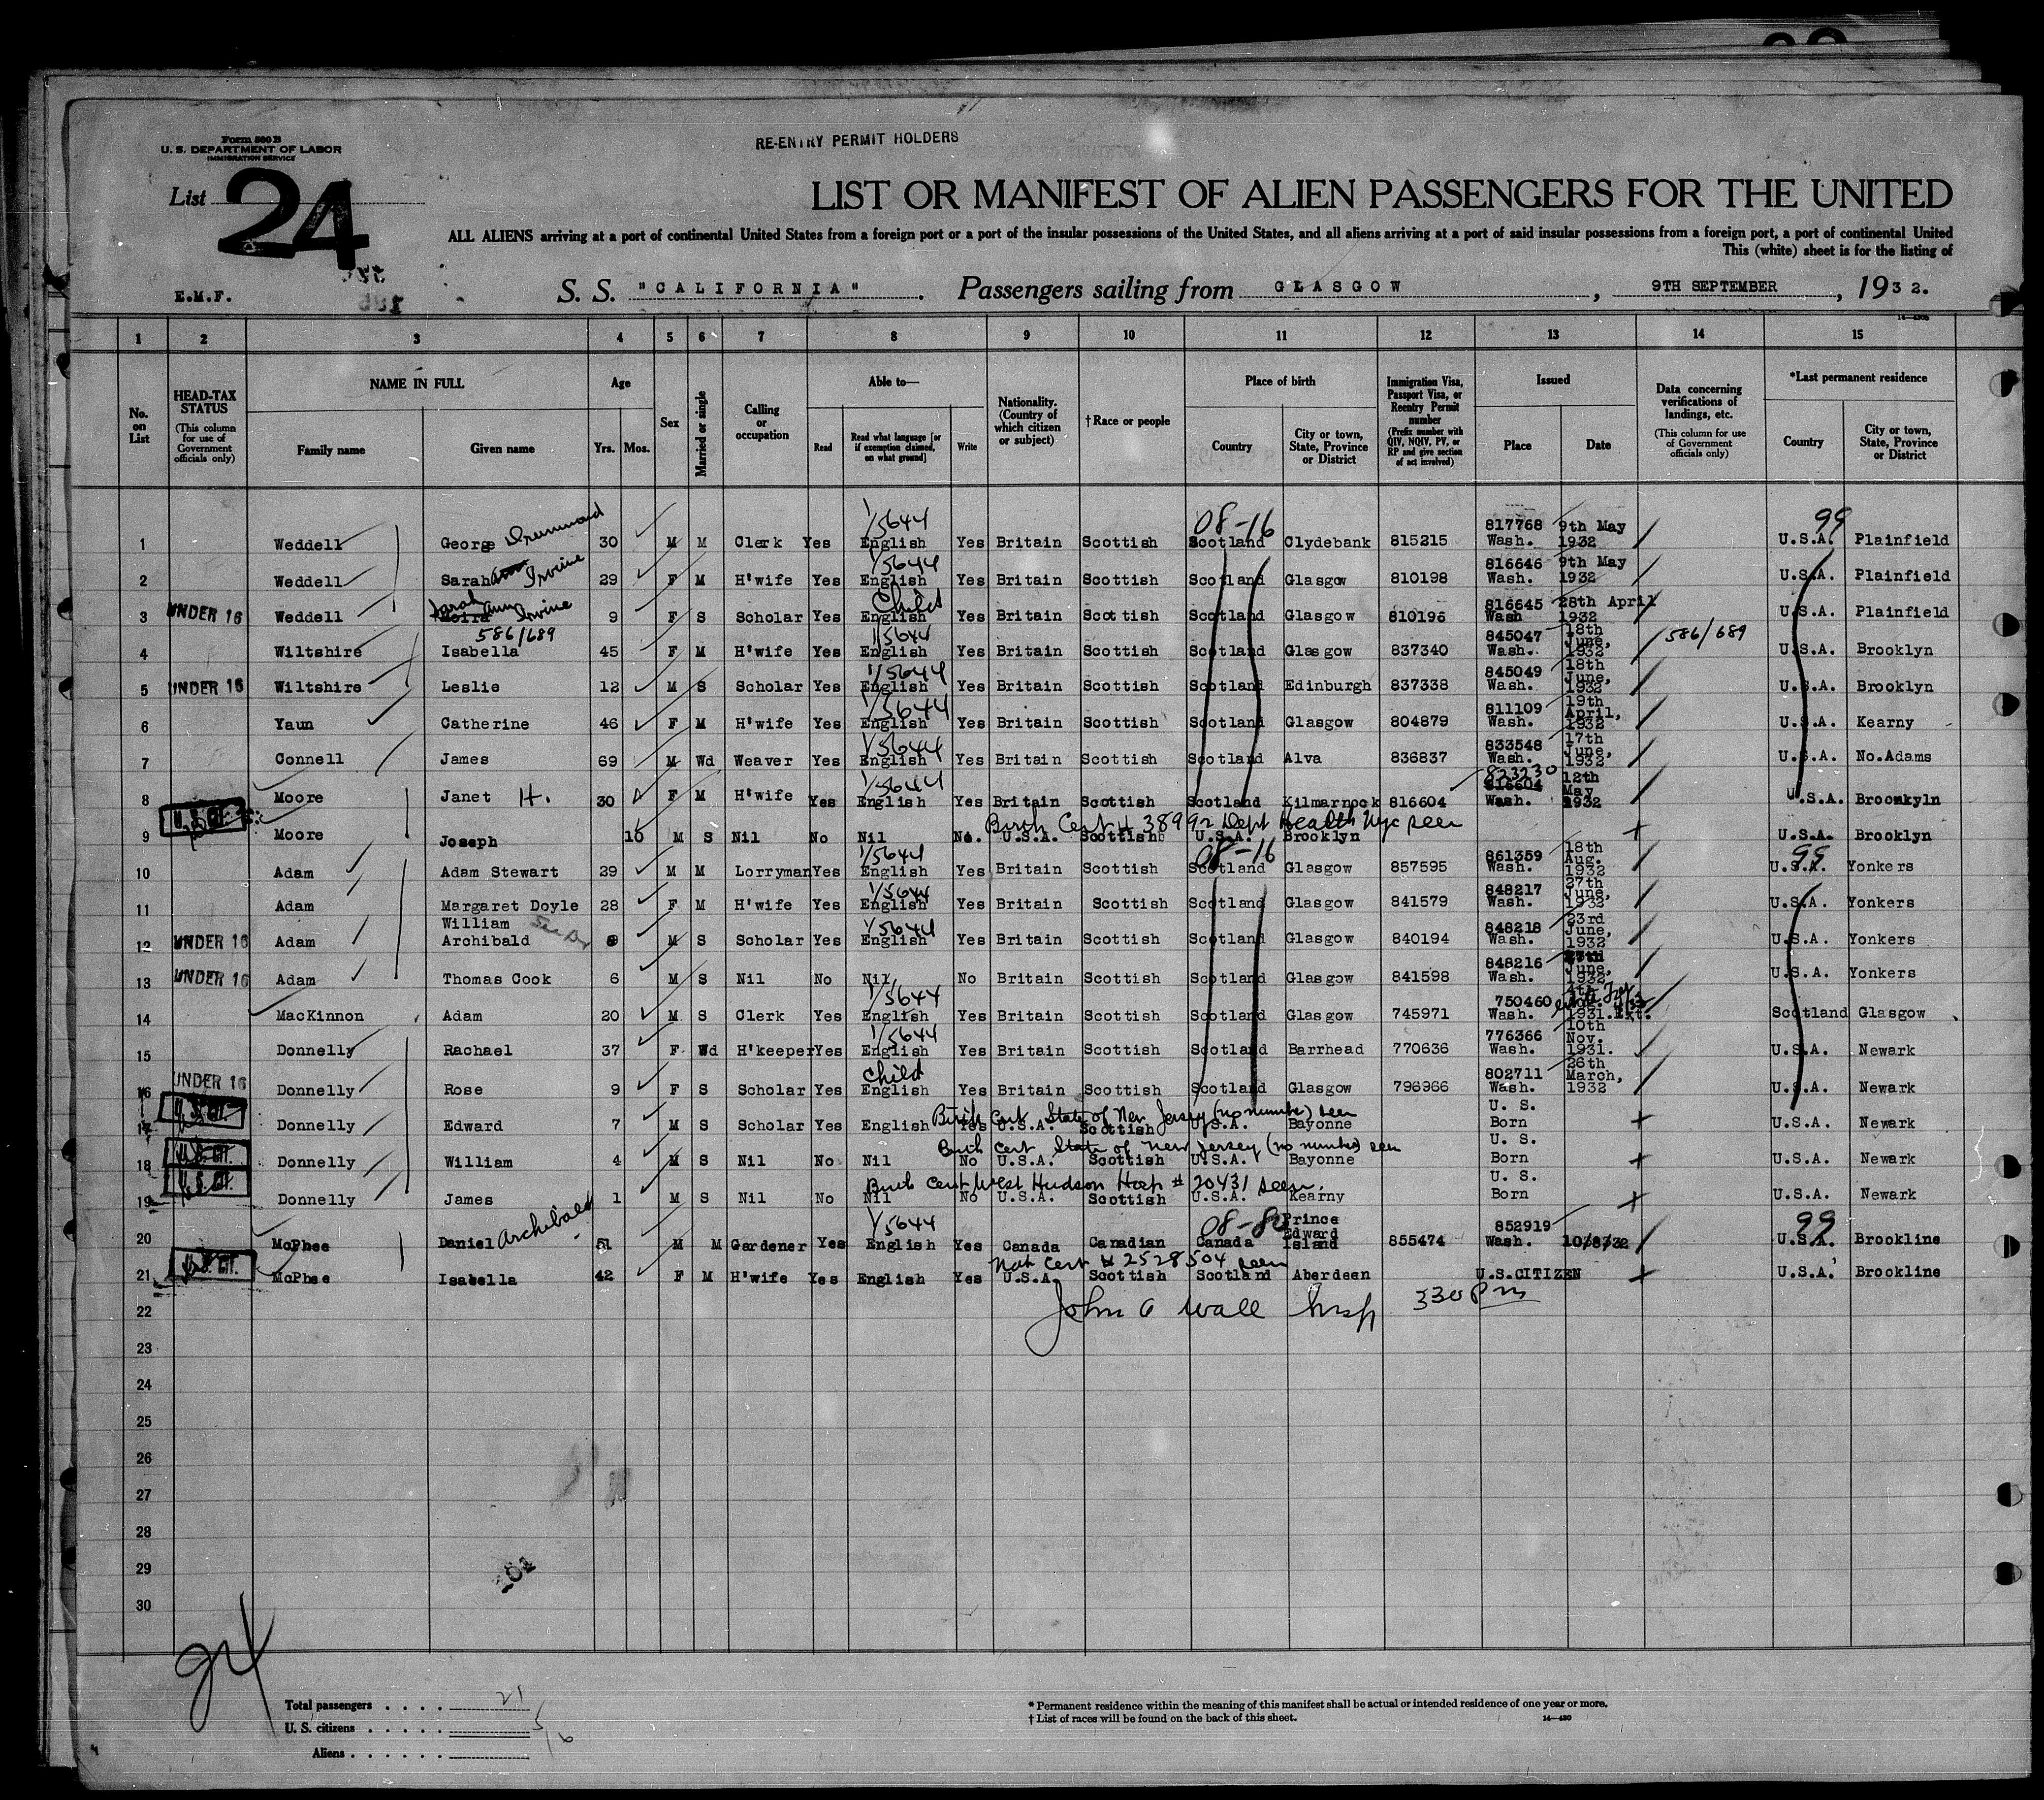 RE-ENTRY PERMIT HOLDERS
Form 500 B
U. S. DEPARTMENT OF LABOR
IMMIGRATION SERVICE
List 24
LIST OR MANIFEST OF ALIEN PASSENGERS FOR THE UNITED
ALL ALIENS arriving at a port of continental United States from a foreign port or a port of the insular possessions of the United States, and all aliens arriving at a port of said insular possessions from a foreign port, a port of continental United
This (white) sheet is for the listing of
E.M.F. S. S. "CALIFORNIA". Passengers sailing from GLASGOW, 9TH SEPTEMBER, 1932.
1 2 3 4 5 6 7 8 9 10 11 12 13 14 15
No. on List
HEAD-TAX STATUS (This column for use of Government officials only)
NAME IN FULL Family name Given name
Age Yrs. Mos.
Sex
Married or single
Calling or occupation
Able to— Read Read what language [or if exemption claimed, on what ground] Write
Nationality. (Country of which citizen or subject)
† Race or people
Place of birth Country City or town, State, Province or District
Immigration Visa, Passport Visa, or Reentry Permit number (Prefix number with QIV, NQIV, PV, or RP and give section of act involved)
Issued Place Date
Data concerning verifications of landings, etc. (This column for use of Government officials only)
*Last permanent residence Country City or town, State, Province or District
1/5644 08-16 99
1 Weddell George Drummond 30 M M Clerk Yes English Yes Britain Scottish Scotland Clydebank 815215 817768 Wash. 9th May 1932 U.S.A. Plainfield
1/5644
2 Weddell Sarah Irvine 29 F M H'wife Yes English Yes Britain Scottish Scotland Glasgow 810198 816646 Wash. 9th May 1932 U.S.A. Plainfield
Sarah Ann Irvine Child
3 UNDER 16 Weddell Moira 9 F S Scholar Yes English Yes Britain Scottish Scotland Glasgow 810196 816645 Wash 28th April 1932 U.S.A. Plainfield
586/689 1/5644
4 Wiltshire Isabella 45 F M H'wife Yes English Yes Britain Scottish Scotland Glasgow 837340 845047 Wash. 18th June, 1932 586/689 U.S.A. Brooklyn
1/5644
5 UNDER 16 Wiltshire Leslie 12 M S Scholar Yes English Yes Britain Scottish Scotland Edinburgh 837338 845049 Wash. 18th June, 1932 U.S.A. Brooklyn
1/5644
6 Yaun Catherine 46 F M H'wife Yes English Yes Britain Scottish Scotland Glasgow 804879 811109 Wash. 19th April, 1932 U.S.A. Kearny
1/5644
7 Connell James 69 M Wd Weaver Yes English Yes Britain Scottish Scotland Alva 836837 833548 Wash. 17th June, 1932 U.S.A. No.Adams
1/5644 823230
8 Moore Janet H. 30 F M H'wife Yes English Yes Britain Scottish Scotland Kilmarnock 816604 816604 Wash. 12th May 1932 U.S.A. Broomkyln
U.S. CIT. Birth Cert # 38992 Dept Health Nyc seen
9 Moore Joseph 10 M S Nil No Nil No. U.S.A. Scottish U.S.A. Brooklyn U.S.A. Brooklyn
1/5644 08-16 99
10 Adam Adam Stewart 29 M M Lorryman Yes English Yes Britain Scottish Scotland Glasgow 857595 861359 Wash. 18th Aug. 1932 U.S.A. Yonkers
1/5644
11 Adam Margaret Doyle 28 F M H'wife Yes English Yes Britain Scottish Scotland Glasgow 841579 848217 Wash. 27th June, 1932 U.S.A. Yonkers
1/5644
12 UNDER 16 Adam William Archibald M S Scholar Yes English Yes Britain Scottish Scotland Glasgow 840194 848218 Wash. 23rd June, 1932 U.S.A. Yonkers
13 UNDER 16 Adam Thomas Cook 6 M S Nil No Nil No Britain Scottish Scotland Glasgow 841598 848216 Wash. June, 1932 U.S.A. Yonkers
1/5644
14 MacKinnon Adam 20 M S Clerk Yes English Yes Britain Scottish Scotland Glasgow 745971 750460 Wash. 4th Aug. 1931. Ext. Scotland Glasgow
1/5644
15 Donnelly Rachael 37 F Wd H'keeper Yes English Yes Britain Scottish Scotland Barrhead 770636 776366 Wash. 10th Nov. 1931. U.S.A. Newark
Child
16 UNDER 16 Donnelly Rose 9 F S Scholar Yes English Yes Britain Scottish Scotland Glasgow 796966 802711 Wash. 26th March, 1932 U.S.A. Newark
U.S. CIT. Birth Cert State of New Jersey (no number) seen
17 Donnelly Edward 7 M S Scholar Yes English Yes U.S.A. Scottish U.S.A. Bayonne U. S. Born U.S.A. Newark
U.S. CIT. Birth Cert State of New Jersey (no number) seen
18 Donnelly William 4 M S Nil No Nil No U.S.A. Scottish U.S.A. Bayonne U. S. Born U.S.A. Newark
U.S. CIT. Birth Cert West Hudson Hosp # 20431 seen.
19 Donnelly James 1 M S Nil No Nil No U.S.A. Scottish U.S.A. Kearny U. S. Born U.S.A. Newark
1/5644 08-80 99
20 McPhee Daniel Archibald 51 M M Gardener Yes English Yes Canada Canadian Canada Prince Edward Island 855474 852919 Wash. 10/8/32 U.S.A. Brookline
U.S. CIT. Nat Cert # 2528504 seen
21 McPhee Isabella 42 F M H'wife Yes English Yes U.S.A. Scottish Scotland Aberdeen U.S.CITIZEN U.S.A. Brookline
22 John A Wall Insp 330 Pm
23
24
25
26
27
28
29
30
24
Total passengers . . . . . 21
U. S. citizens . . . . . 5
Aliens . . . . . . 16
* Permanent residence within the meaning of this manifest shall be actual or intended residence of one year or more.
† List of races will be found on the back of this sheet.
14—430